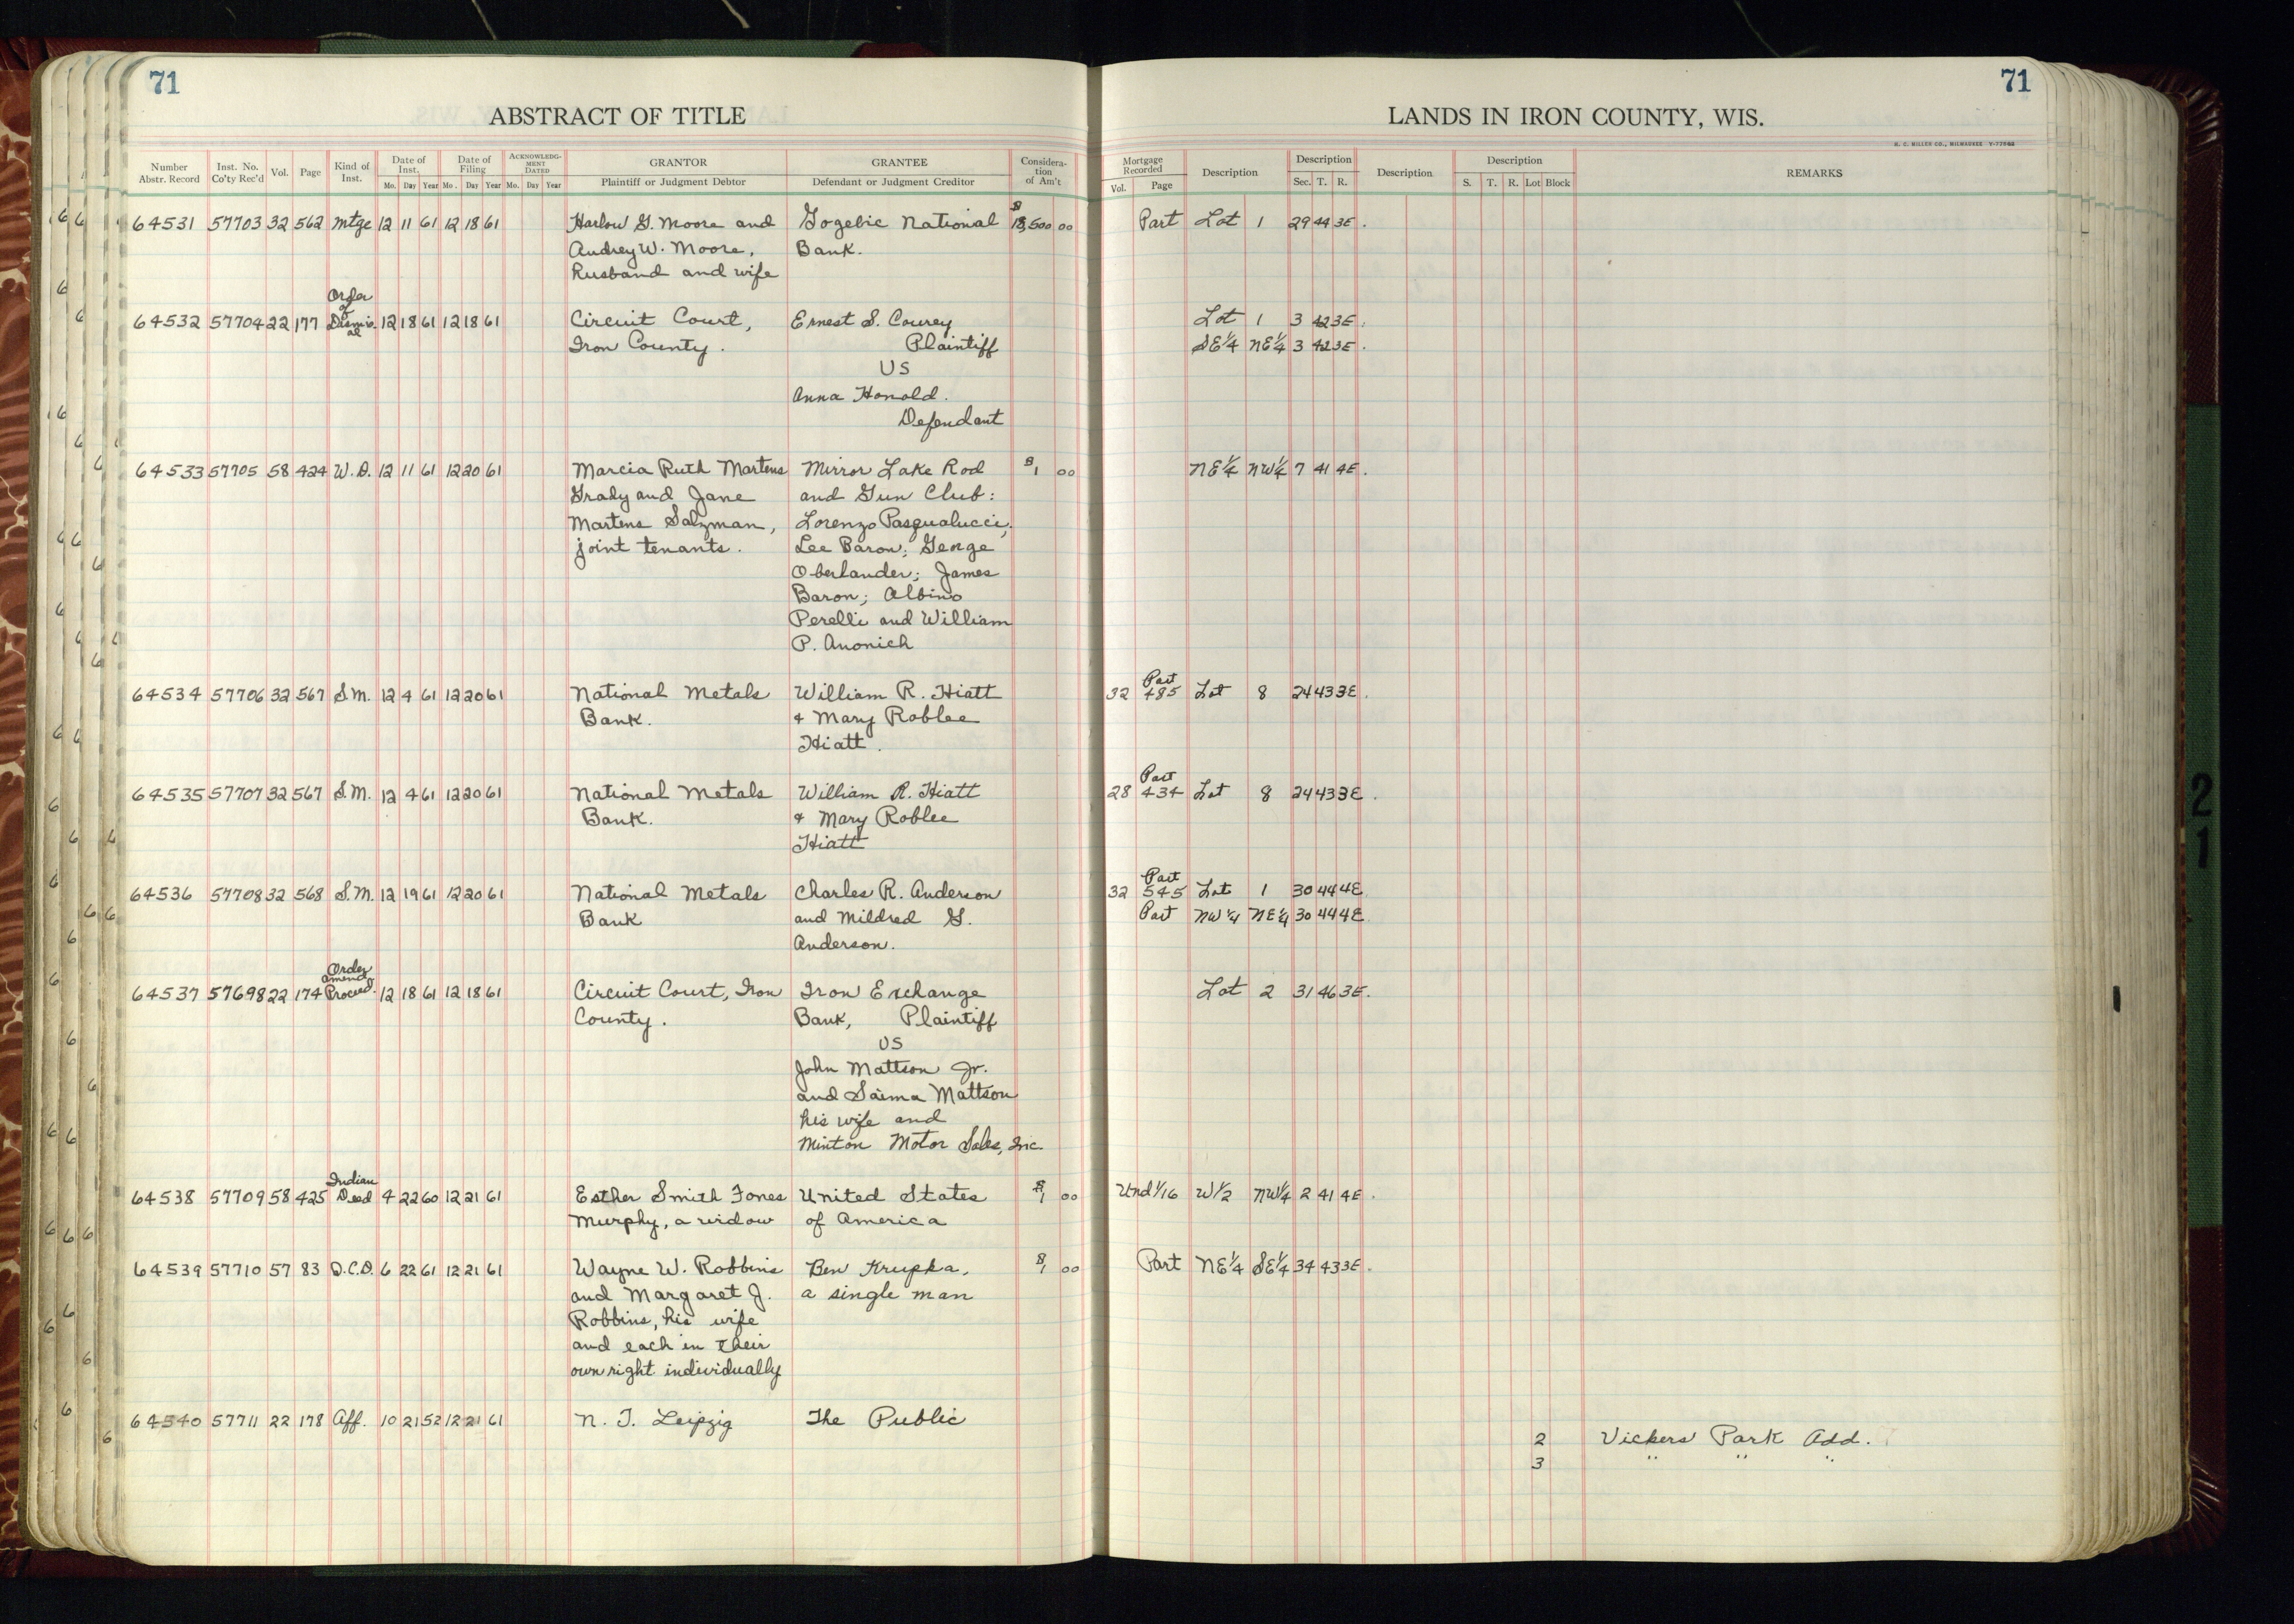 71
71
ABSTRACT OF TITLE
LANDS IN IRON COUNTY, WIS.
H. C. MILLER CO., MILWAUKEE
Number Abstr. Record
Inst. No. Co'ty Rec'd
Vol.
Page
Kind of Inst.
Date of Inst.
Mo. Day Year
Date of Filing
Mo. Day Year
ACKNOWLEDG-MENT DATED
Mo. Day Year
GRANTOR
Plaintiff or Judgment Debtor
GRANTEE
Defendant or Judgment Creditor
Considera-tion of Am't
Mortgage Recorded
Vol. Page
Description
Description
Sec. T. R.
Description
Description
S. T. R. Lot Block
REMARKS
64531 57703 32 562 Mtge 12 11 61 12 18 61 Harlow G. Moore and Gogebic National $18,500 00 Part Lot 1 29 44 3E.
Audrey W. Moore, Bank.
husband and wife
Order
of
64532 57704 22 177 Dismis- 12 18 61 12 18 61 Circuit Court, Ernest S. Courey Lot 1 3 42 3E.
al
Iron County. Plaintiff SE¼ NE¼ 3 42 3E.
VS
Anna Honold.
Defendant
64533 57705 58 424 W.D. 12 11 61 12 20 61 Marcia Ruth Martens Mirror Lake Rod $1 00 NE¼ NW¼ 7 41 4E.
Grady and Jane and Gun Club:
Martens Salzman, Lorenzo Pasqualucci;
joint tenants. Lee Baron; George
Oberlander; James
Baron; Albino
Perelli and William
P. Anonich
Part
64534 57706 32 567 S.M. 12 4 61 12 20 61 National Metals William R. Hiatt 32 485 Lot 8 24 43 3E.
Bank. & Mary Roblee
Hiatt.
Part
64535 57707 32 567 S.M. 12 4 61 12 20 61 National Metals William R. Hiatt 28 434 Lot 8 24 43 3E.
Bank. & Mary Roblee
Hiatt
Part
64536 57708 32 568 S.M. 12 19 61 12 20 61 National Metals Charles R. Anderson 32 545 Lot 1 30 44 4E
Bank and Mildred G. Part NW¼ NE¼ 30 44 4E
Anderson.
Order
amend.
64537 57698 22 174 Proceed. 12 18 61 12 18 61 Circuit Court, Iron Iron Exchange Lot 2 31 46 3E.
County. Bank, Plaintiff
VS
John Mattson Jr.
and Saima Mattson
his wife and
Minton Motor Sales, Inc.
Indian
64538 57709 58 425 Deed 4 22 60 12 21 61 Esther Smith Jones United States $1 00 Und 1/16 W½ NW¼ 2 41 4E.
Murphy, a widow of America
64539 57710 57 83 Q.C.D. 6 22 61 12 21 61 Wayne W. Robbins Ben Krupka, $1 00 Part NE¼ SE¼ 34 43 3E.
and Margaret J. a single man
Robbins, his wife
and each in their
own right individually
64540 57711 22 178 Aff. 10 21 52 12 21 61 N. T. Leipzig The Public
2 Vickers Park Add.
3 " " "
21